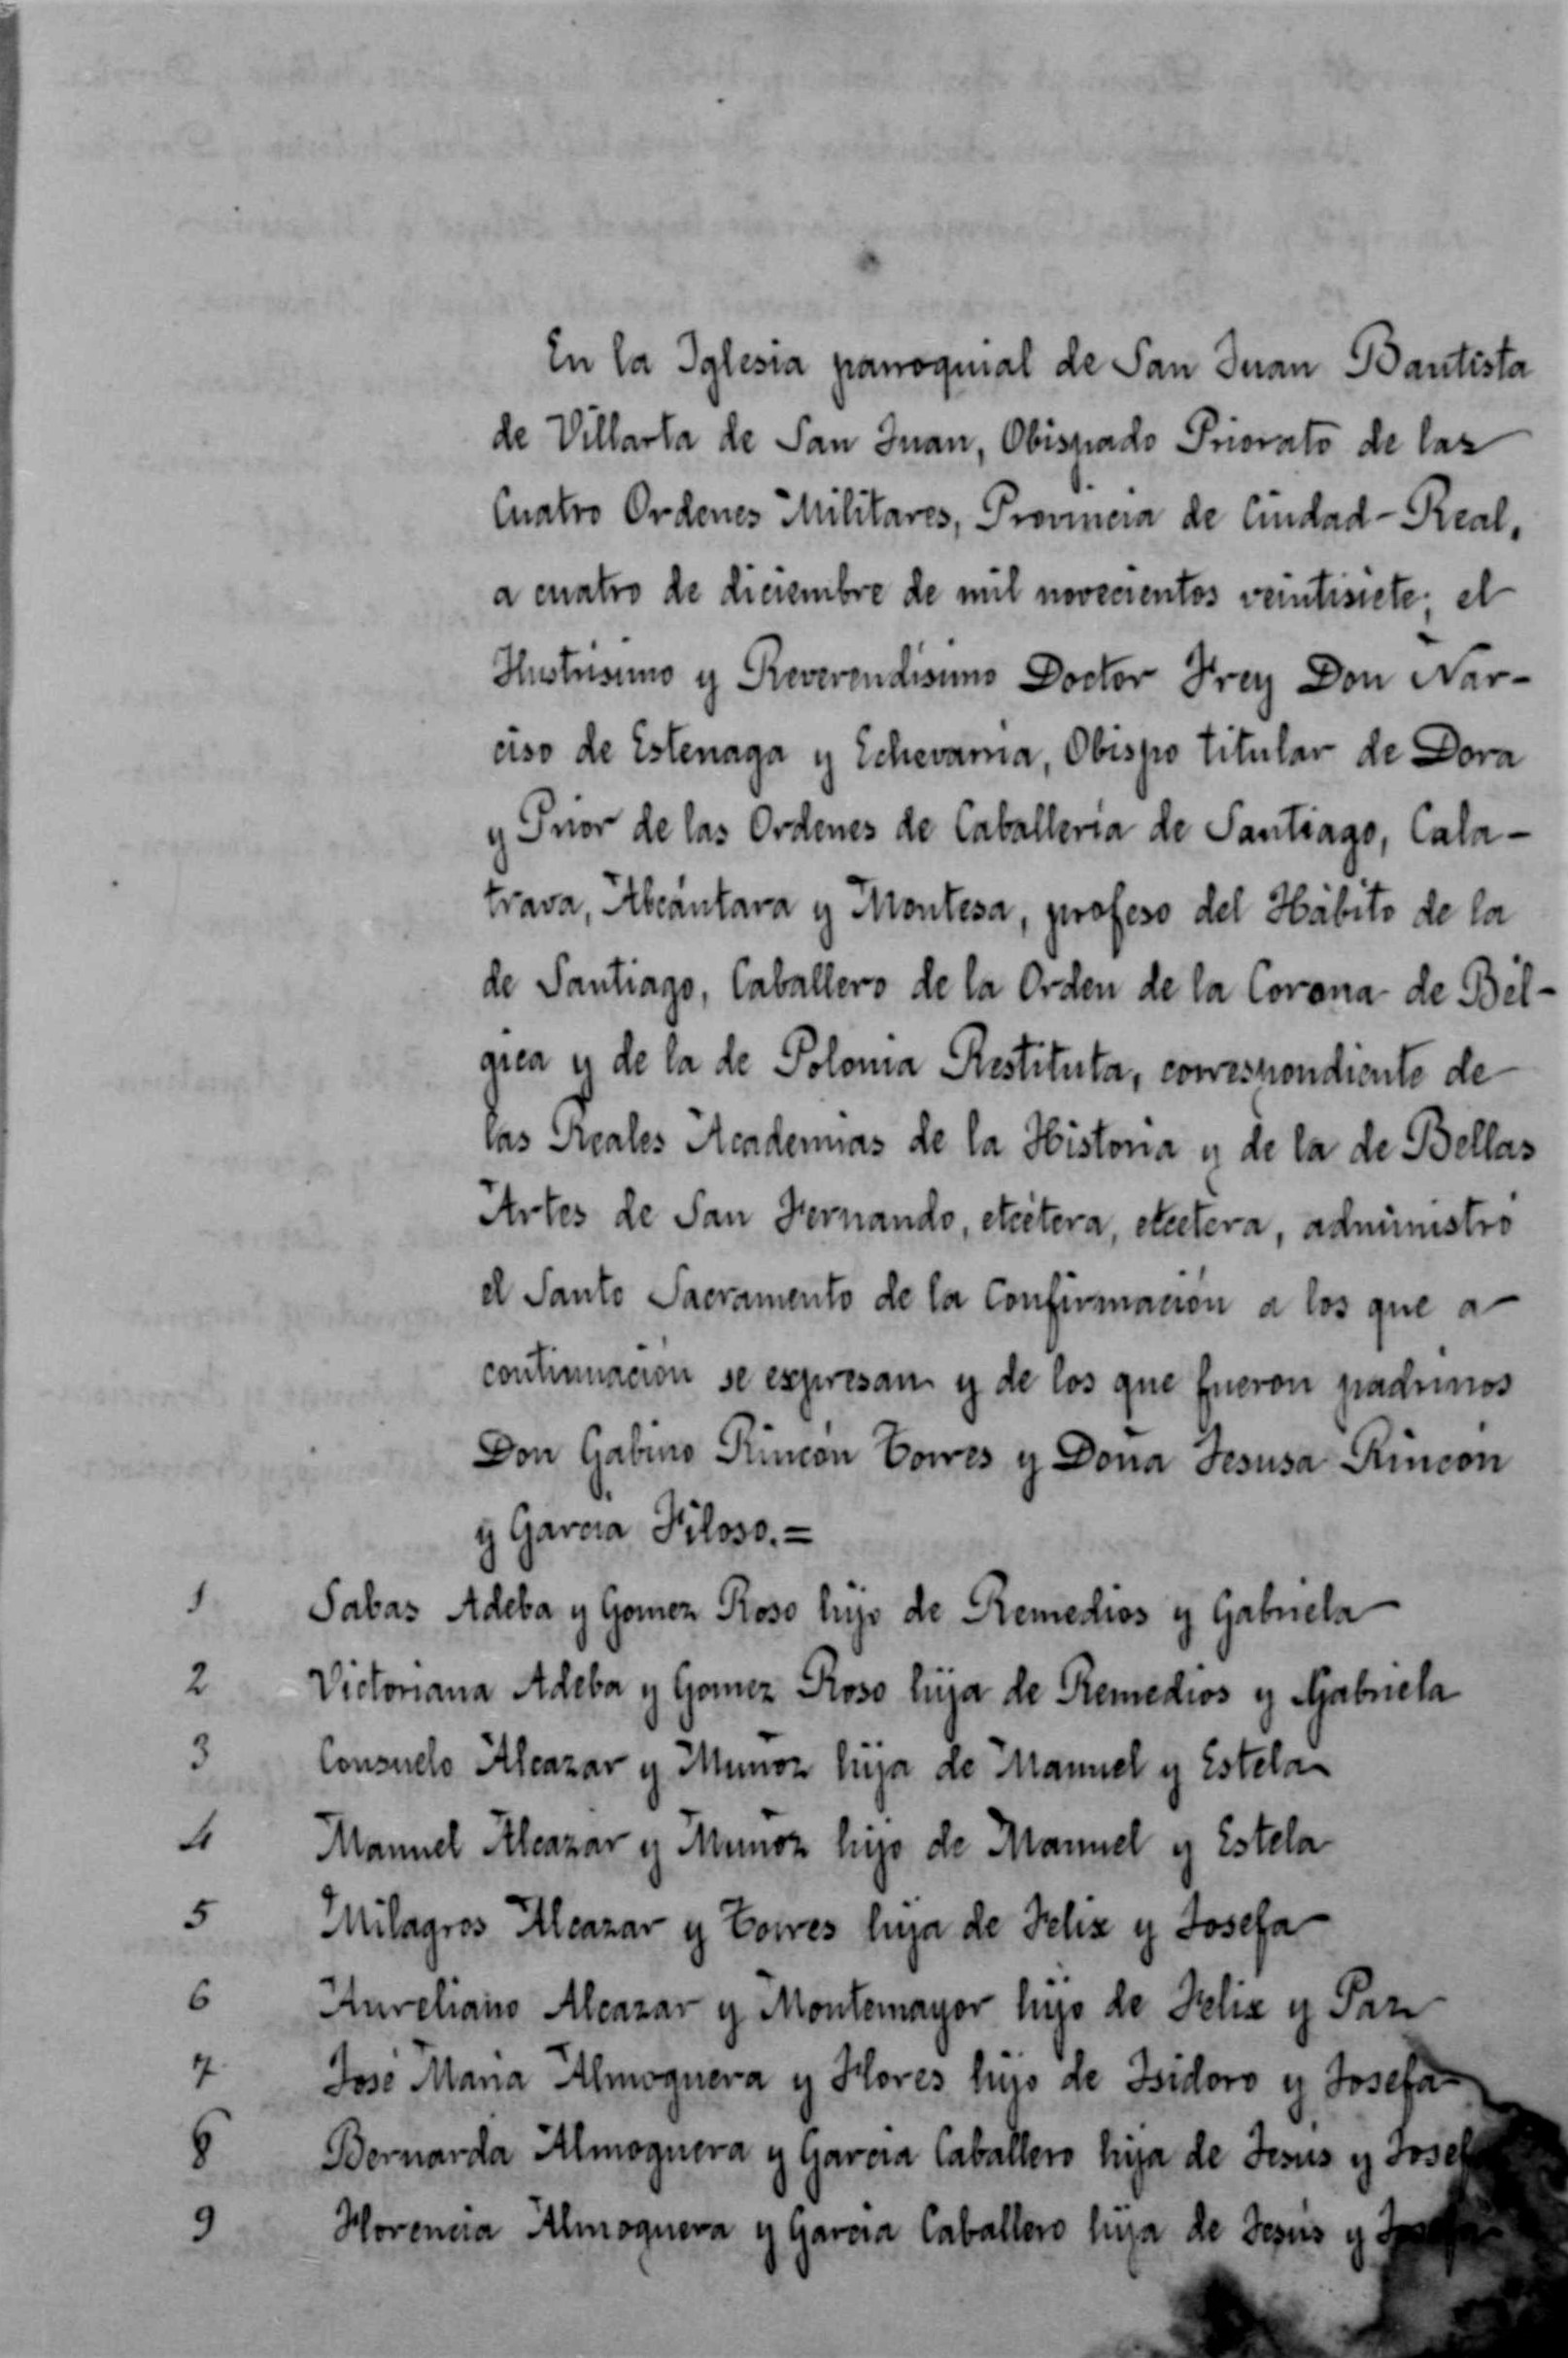 En la Iglesia parroquial de San Juan Bautista
de Villarta de San Juan, Obispado Priorato de las
Cuatro Ordenes Militares, Provincia de Ciudad-Real,
a cuatro de diciembre de mil novecientos veintisiete; el
Ilustrísimo y Reverendísimo Doctor Frey Don Nar-
ciso de Estenaga y Echevarría, Obispo titular de Dora
y Prior de las Ordenes de Caballería de Santiago, Cala-
trava, Alcántara y Montesa, profeso del Hábito de la
de Santiago, Caballero de la Orden de la Corona de Bél-
gica y de la de Polonia Restituta, correspondiente de
las Reales Academias de la Historia y de la de Bellas
Artes de San Fernando, etcétera, etcétera, administró
el Santo Sacramento de la Confirmación a los que a
continuación se expresan y de los que fueron padrinos
Don Gabino Rincón Torres y Doña Jesusa Rincón
y García Filoso.=
1 Sabas Adeba y Gomez Roso hijo de Remedios y Gabriela
2 Victoriana Adeba y Gomez Roso hija de Remedios y Gabriela
3 Consuelo Alcazar y Muñoz hija de Manuel y Estela
4 Manuel Alcazar y Muñoz hijo de Manuel y Estela
5 Milagros Alcazar y Torres hija de Felix y Josefa
6 Aureliano Alcazar y Montemayor hijo de Felix y Paz
7 José María Almoguera y Flores hijo de Isidoro y Josefa
8 Bernarda Almoguera y García Caballero hija de Jesús y Josefa
9 Florencia Almoguera y García Caballero hija de Jesús y Josefa